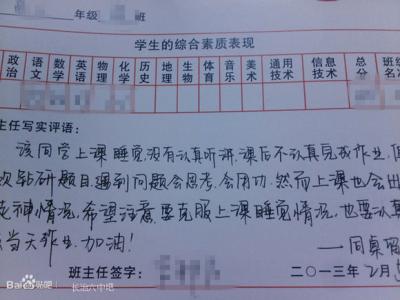 年级 班
学生的综合素质表现
政治 语文 数学 英语 物理 化学 历史 地理 生物 体育 音乐 美术 通用技术 信息技术 总分 班级名
主任写实评语:
该同学上课睡觉,没有认真听讲,课后不认真完成作业,但
欢钻研题目,遇到问题会思考,会用功,然而上课也会出
走神情况,希望注意要克服上课睡觉情况,也要认真
当天作业,加油!
——同桌
班主任签字: 二〇一三年 2月
Bai百度贴吧 长治六中吧